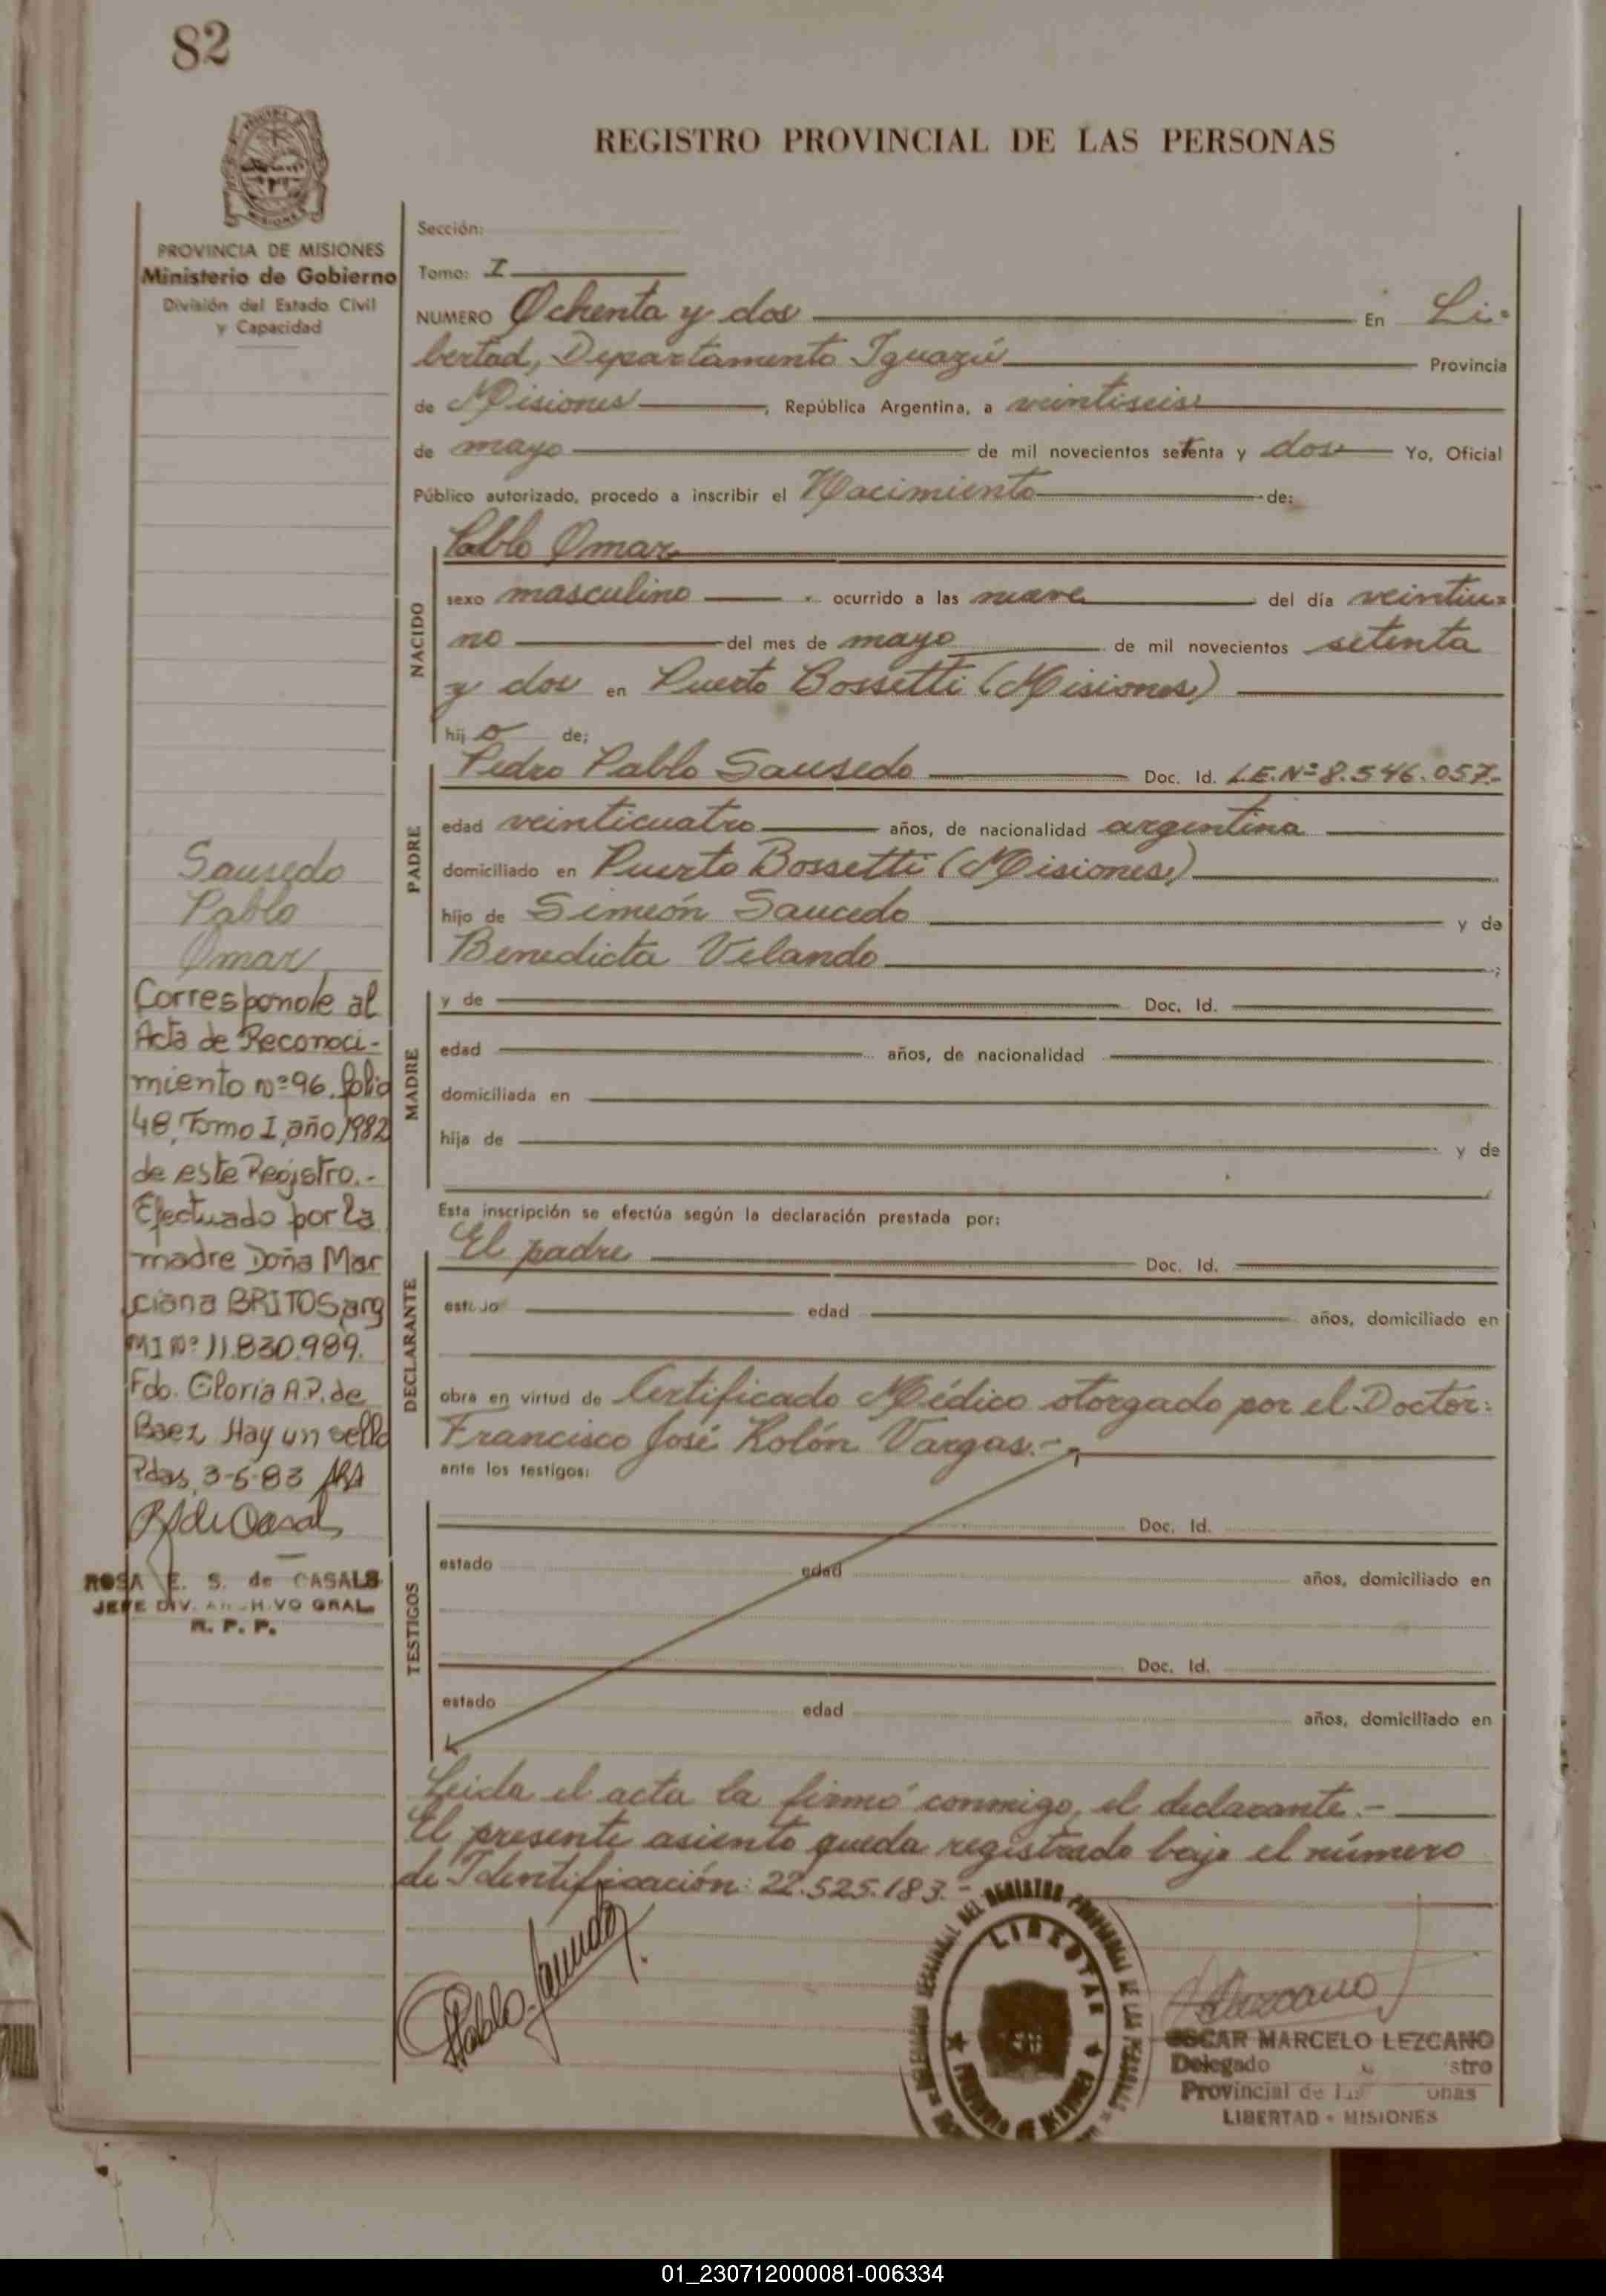 82
REGISTRO PROVINCIAL DE LAS PERSONAS
MISIONES
PROVINCIA DE MISIONES
Ministerio de Gobierno
División del Estado Civil
y Capacidad
Sección:
Tomo: I
NUMERO Ochenta y dos En Li-
bertad, Departamento Iguazú Provincia
de Misiones, República Argentina, a veintiseis
de mayo de mil novecientos setenta y dos Yo, Oficial
Público autorizado, procedo a inscribir el Nacimiento de:
NACIDO
Pablo Omar
sexo masculino ocurrido a las nueve del día veintiu=
no del mes de mayo de mil novecientos setenta
y dos en Puerto Bossetti (Misiones)
hijo de;
PADRE
Pedro Pablo Sausedo Doc. Id. L.E.Nº 8.546.057.-
edad veinticuatro años, de nacionalidad argentina
domiciliado en Puerto Bossetti (Misiones)
hijo de Simeón Saucedo y de
Benedicta Velando ;
MADRE
y de Doc. Id.
edad años, de nacionalidad
domiciliada en
hija de y de
Esta inscripción se efectúa según la declaración prestada por:
DECLARANTE
El padre Doc. Id.
estado edad años, domiciliado en
obra en virtud de Certificado Médico otorgado por el Doctor:
Francisco José Kolón Vargas.-
ante los testigos:
TESTIGOS
Doc. Id.
estado edad años, domiciliado en
Doc. Id.
estado edad años, domiciliado en
Leida el acta la firmó conmigo, el declarante.-
El presente asiento queda registrado bajo el número
de Identificación: 22.525.183.-
Sausedo
Pablo
Omar
Corresponde al
Acta de Reconoci-
miento nº 96. folio
48, Tomo I, año 1982
de este Registro.-
Efectuado por la
madre Doña Mar
ciana BRITOS, arg
MI Nº 11.830.989.
Fdo. Gloria A.P. de
Baez Hay un sello
Pdas, 3-5-83
ROSA E. S. de CASALS
JEFE DIV. ARCHIVO GRAL.
R. P. P.
Pablo
LIBERTAD
Lezcano
OSCAR MARCELO LEZCANO
Delegado stro
Provincial de Las onas
LIBERTAD - MISIONES
01_230712000081-006334